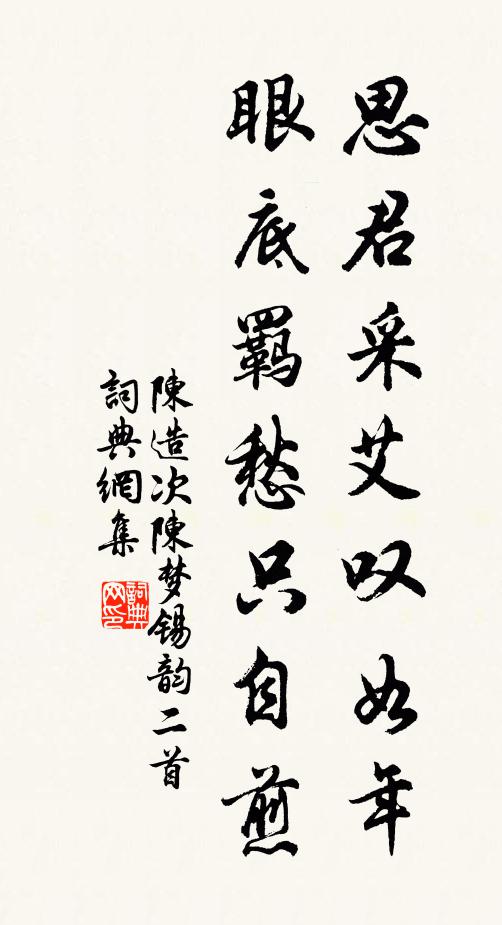 思君采艾叹如年
眼底羁愁只自煎
陳造次陳梦锡韵二首
詞典網集
詞典网印